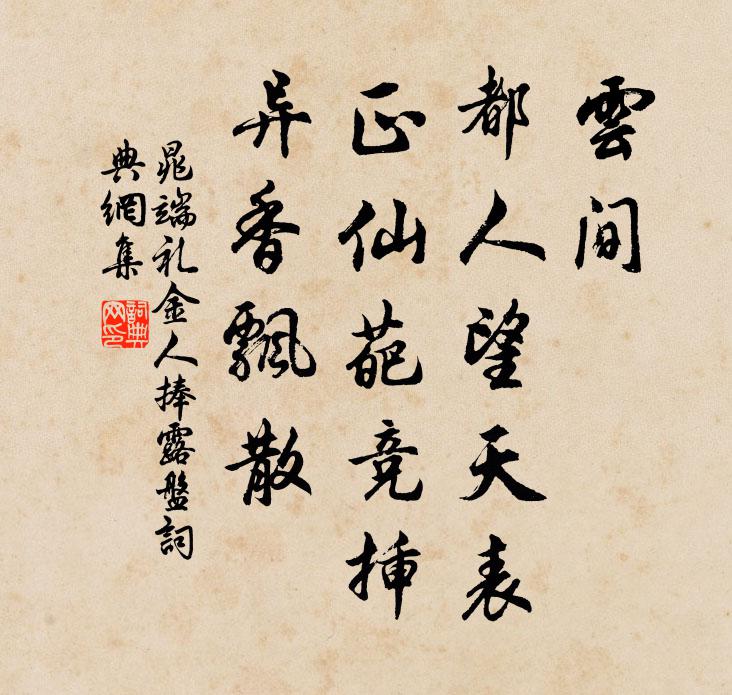 雲間
都人望天表
正仙葩竞揷
异香飄散
晁端礼金人捧露盤詞
典網集
詞典網印